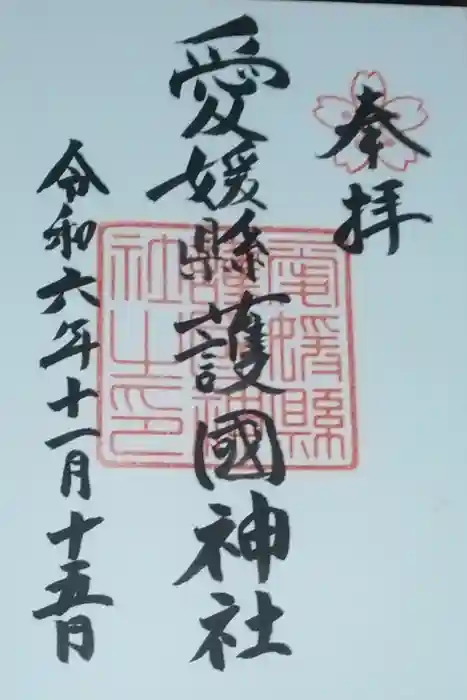 奉拝
愛媛縣護國神社
愛媛縣護國神社之印
令和六年十一月十五日